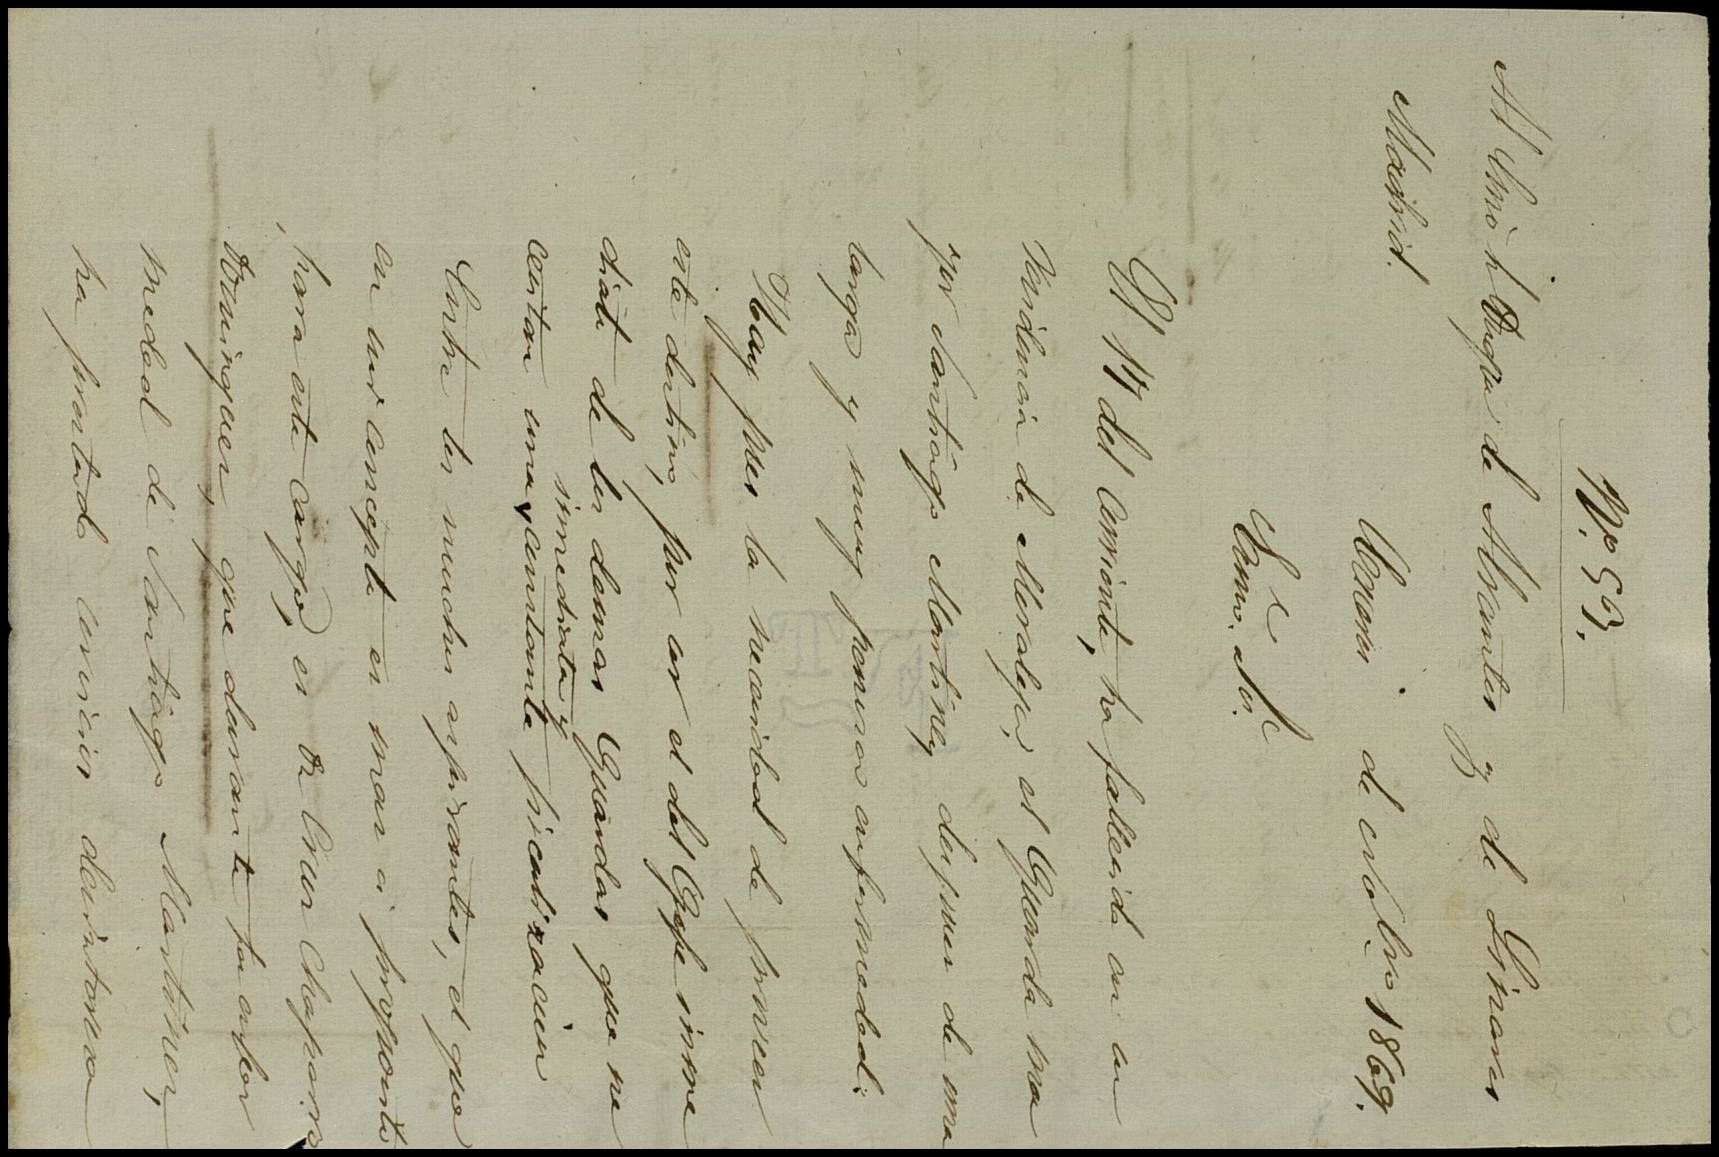 N.º 53.
Al Exmo Sr Duque de Abrantes y de Linares
Madrid.
de Nobre 1869.
Excmo. Sor.
El 17 del corriente, ha fallecido en su
residencia de Moralejos, el Guarda ma
yor Santiago Martinez despues de una
larga y muy penosa enfermedad.
Hay pues la necesidad de proveer
este destino, por ser el del Gefe inme
diato de los demas Guardas que ne
cesitan una inmediata y constante fiscalizacion
Entre los muchos aspirantes, el que
en mi concepto es mas a proposito
para este cargo, es Dn Cruz Chaparro
Dominguez, que durante la enfer
medad de Santiago Martinez,
ha prestado servicios desintere